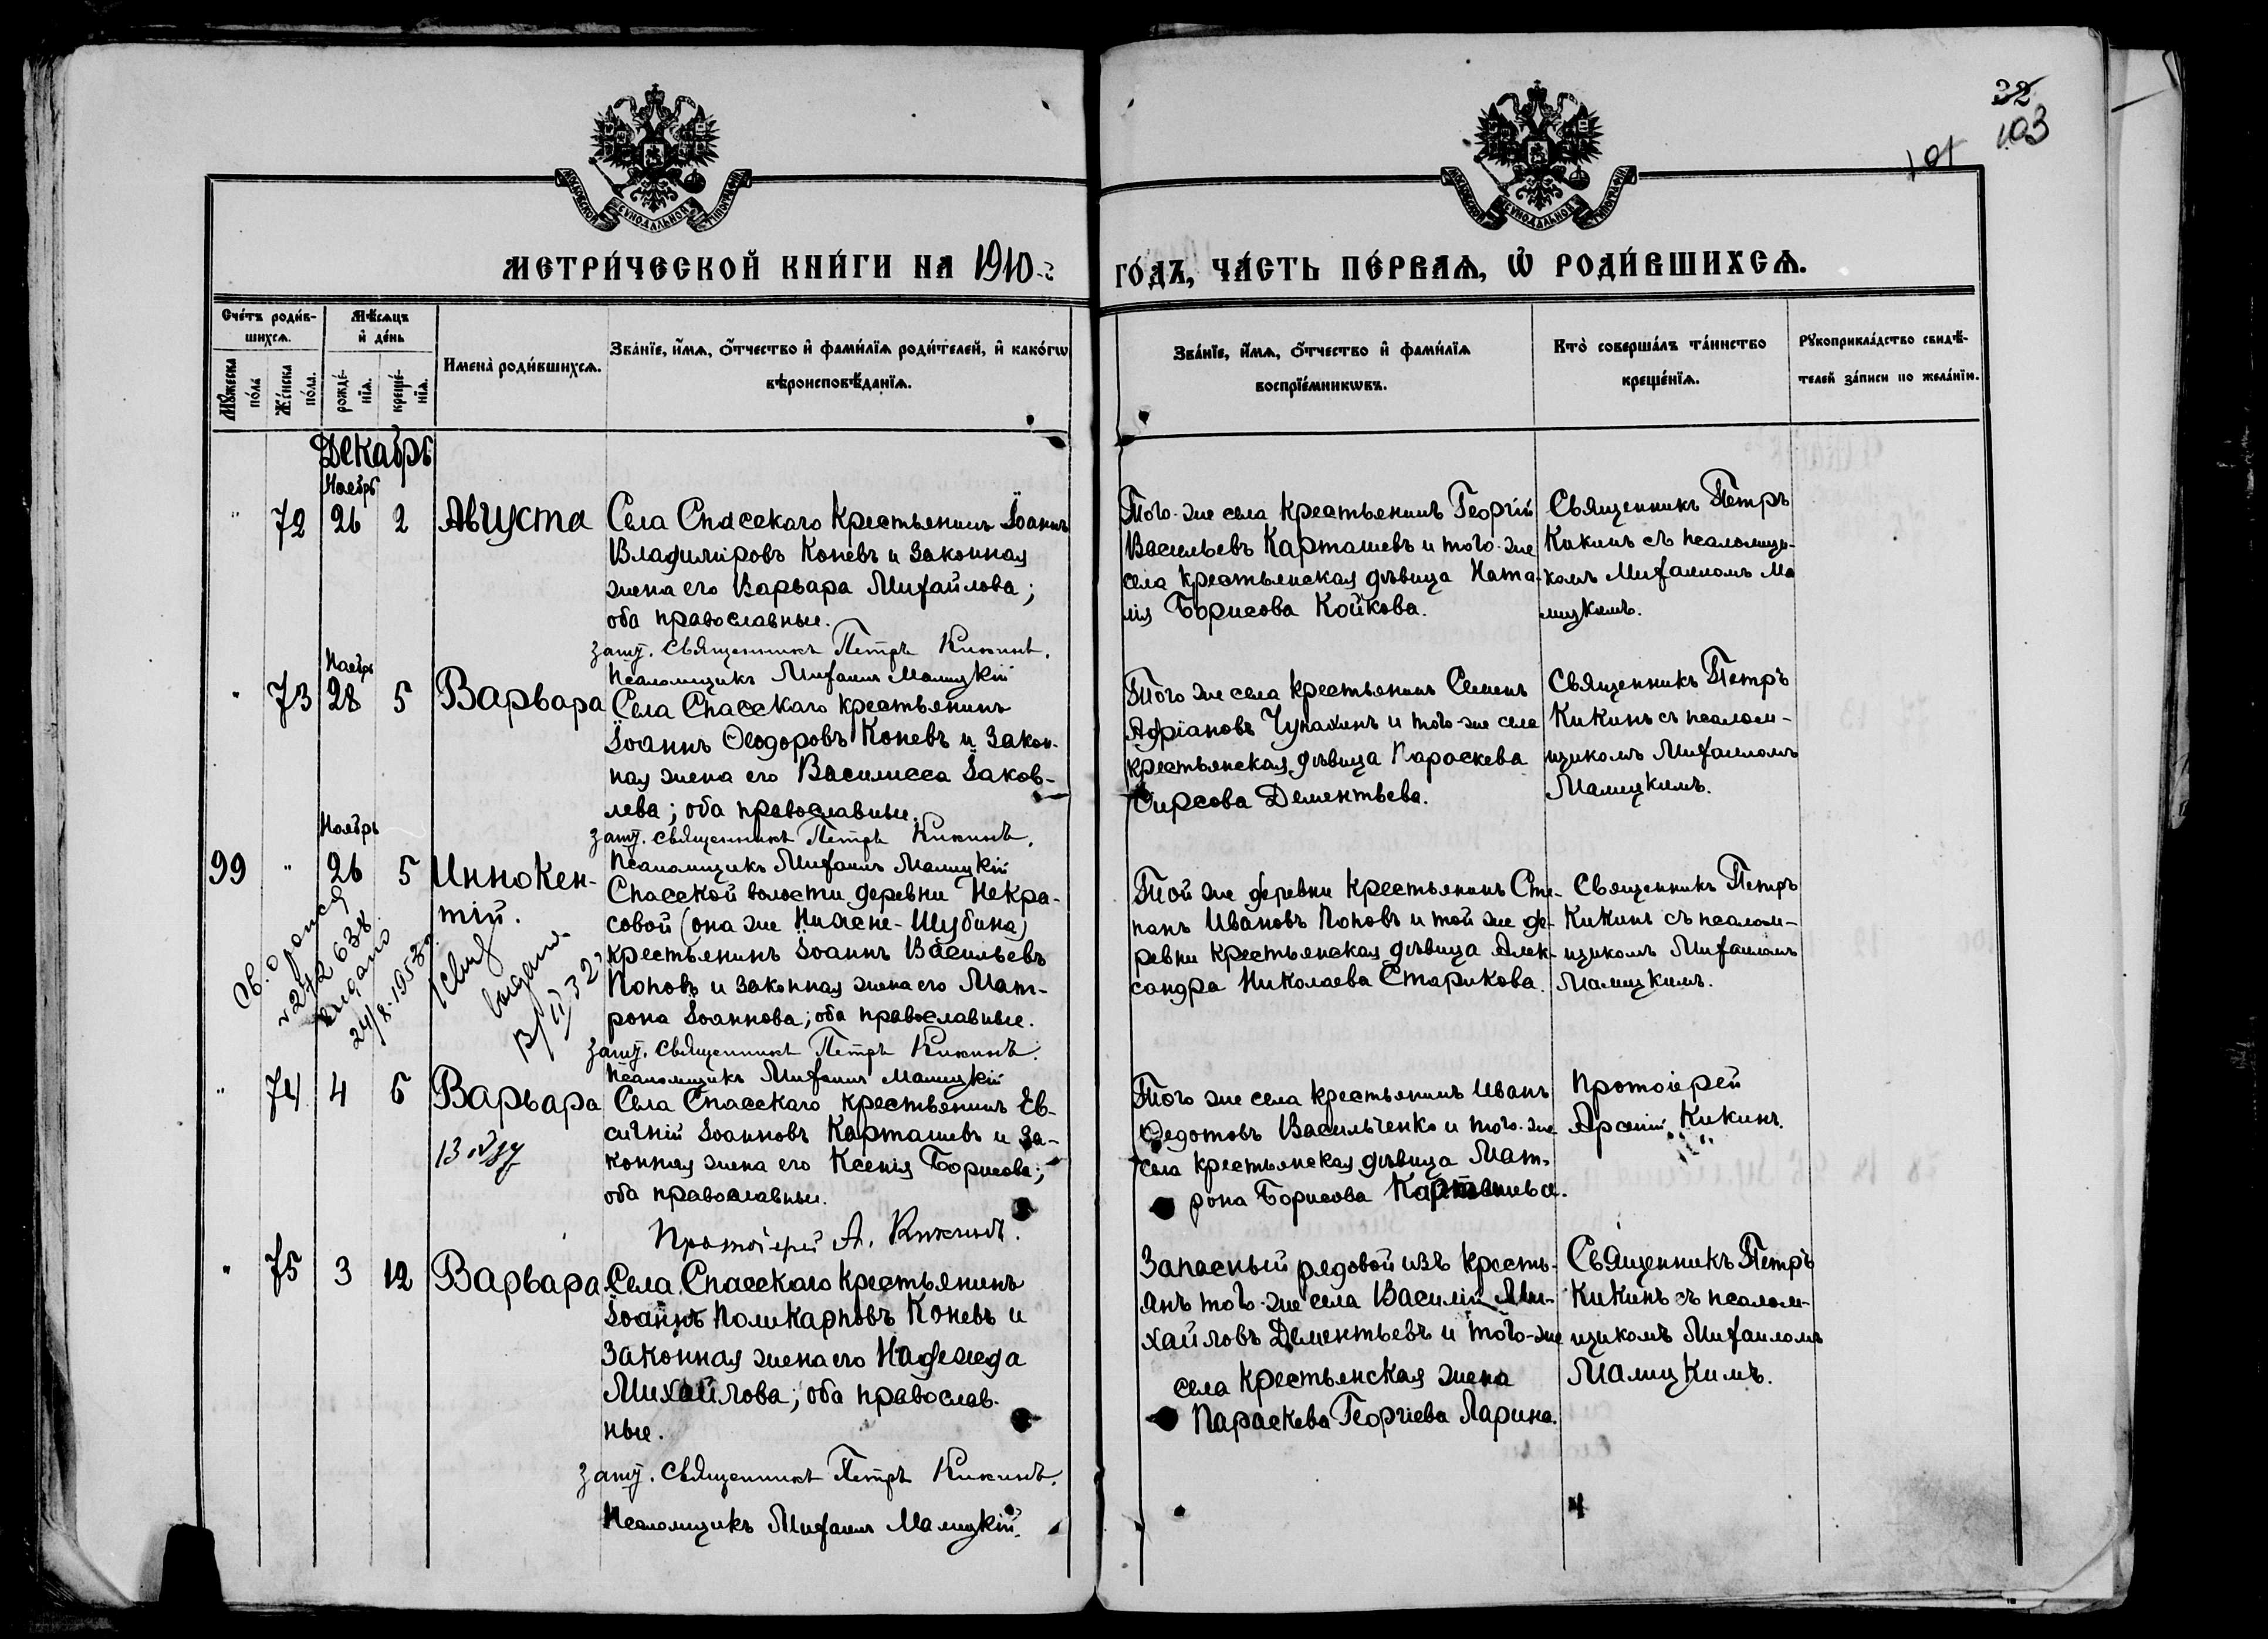 32
103
101
МОСКОВСКОЙ СУНОДАЛЬНОЙ ТИПОГРАФІИ
МОСКОВСКОЙ СУНОДАЛЬНОЙ ТИПОГРАФІИ
МЕТРИ́ЧЕСКОЙ КНИ́ГИ НА 1910 г
ГО́ДЪ, ЧА́СТЬ ПЕ́РВАѦ, Ѡ҆ РОДИ́ВШИХСѦ.
Сче́тъ роди́в-
шихсѧ.
Мѣ́сѧцъ
и҆ де́нь
Мꙋ́жеска
по́ла
Же́нска
по́ла.
рожде́-
нїѧ.
креще́-
нїѧ.
Имена̀ роди́вшихсѧ.
Зва́нїе, и҆́мѧ, о҆́тчество и҆ фами́лїѧ роди́телей, и҆ како́гѡ
вѣроисповѣ́данїѧ.
Зва́нїе, и҆́мѧ, о҆́тчество и҆ фами́лїѧ
воспрїе́мникѡвъ.
Кто̀ соверша́лъ та́инство
креще́нїѧ.
Рꙋкоприкла́дство свидѣ́-
телей за́писи по жела́нїю.
Декабрь
Ноябрь
" 72 26 2 Августа
Села Спасскаго крестьянинъ Іоаннъ
Владиміровъ Коневъ и законная
жена его Варвара Михайлова;
оба православные.
Того-же села крестьянинъ Георгій
Васильевъ Карташевъ и того-же
села крестьянская дѣвица Ната-
лія Борисова Койкова.
Священникъ Петръ
Кикинъ съ псаломщи-
комъ Михаиломъ Ма
лицкимъ.
Священникъ Петръ Кикинъ.
Псаломщикъ Михаилъ Малицкій
Ноябрь
" 73 28 5 Варвара
Села Спасскаго крестьянинъ
Іоаннъ Ѳеодоровъ Коневъ и закон-
ная жена его Василисса Іаков-
лева; оба православные.
Того же села крестьянинъ Семенъ
Адріановъ Чунахинъ и того-же села
крестьянская дѣвица Параскева
Фирсова Дементьева.
Священникъ Петръ
Кикинъ съ псалом-
щикомъ Михаиломъ
Малицкимъ.
Священникъ Петръ Кикинъ.
Псаломщикъ Михаилъ Малицкій
Ноябрь
99 " 26 5 Иннокен-
тій.
Спасской волости деревни Некра-
совой (она же Нижне-Шубина)
крестьянинъ Іоаннъ Васильевъ
Поповъ и законная жена его Мат-
рона Іоаннова; оба православные.
Той же деревни крестьянинъ Сте-
панъ Ивановъ Поповъ и той же де-
ревни крестьянская дѣвица Алек-
сандра Николаева Старикова.
Священникъ Петръ
Кикинъ съ псалом-
щикомъ Михаиломъ
Малицкимъ.
выдано
24/8-1953г.
выдана
Священникъ Петръ Кикинъ.
Псаломщикъ Михаилъ Малицкій
" 74 4 6 Варвара
Села Спасскаго крестьянинъ Ев-
сигній Іоанновъ Карташевъ и за-
конная жена его Ксенія Борисова;
оба православные.
Того же села крестьянинъ Иванъ
Ѳедотовъ Васильченко и того-же
села крестьянская дѣвица Мат-
рона Борисова Карташева.
Протоіерей
Арсеній Кикинъ.
Протоіерей А. Кикинъ.
" 75 3 12 Варвара
Села Спасскаго крестьянинъ
Іоаннъ Поликарповъ Коневъ и
законная жена его Надежда
Михайлова; оба православ-
ные.
Запасный рядовой изъ кресть-
янъ того-же села Василій Ми-
хайловъ Дементьевъ и того-же
села крестьянская жена
Параскева Георгіева Ларина.
Священникъ Петръ
Кикинъ съ псалом-
щикомъ Михаиломъ
Малицкимъ.
Священникъ Петръ Кикинъ.
Псаломщикъ Михаилъ Малицкій.